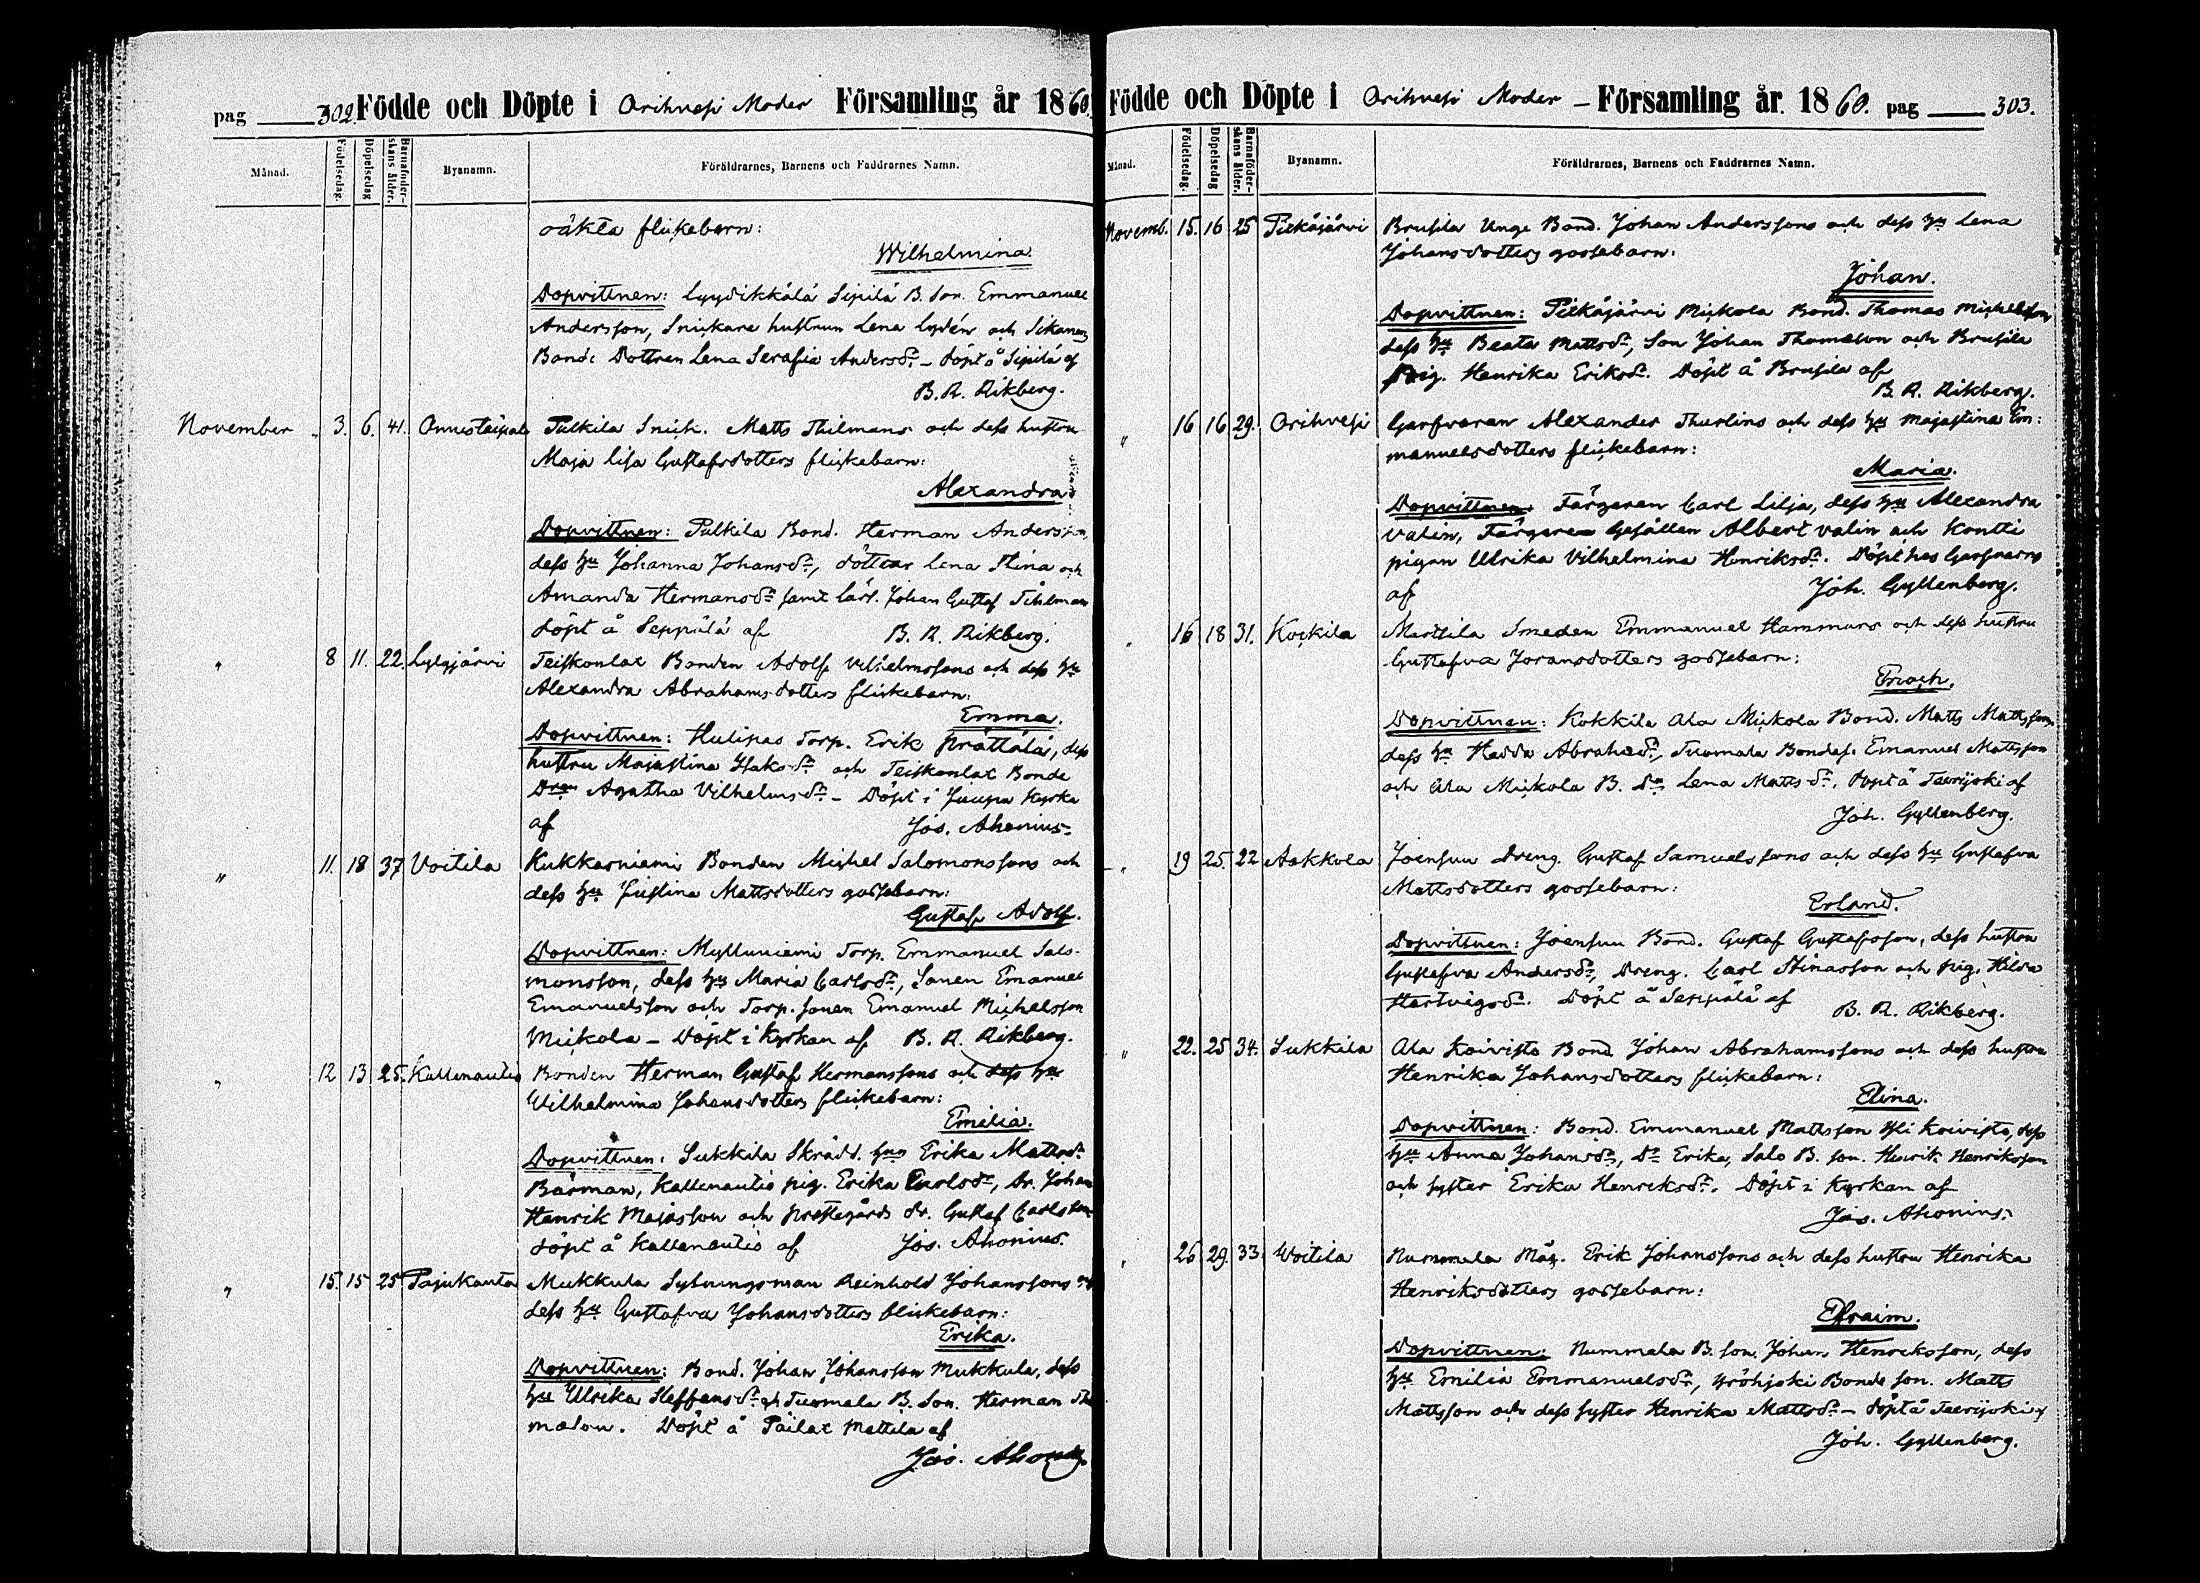 pag 302. Födde och Döpte i Orihvesi Moder Församling år 1860.
Månad. Födelsedag. Döpelsedag Barnaföder-skans ålder. Byanamn. Föräldrarnes, Barnens och Faddrarnes Namn.
oäkta flickebarn:
Wilhelmina
Dopvittnen: Lyydikkälä Sipilä B. Son. Emmanuel
Andersson, Snickare hustrun Lena Lydén och Sikanen
Bonde Dottren Lena Serafia Andersdr – Döpt å Sipilä af
B. R. Rikberg.
November 3. 6. 41. Onnistaipale Pulkila Snick. Matts Thilmans och dess hustru
Maja Lisa Gustafsdotters flickebarn:
Alexandra
Dopvittnen: Pulkila Bond. Herman Andersson,
dess hu Johanna Johansdr, döttrar Lena Stina och
Amanda Hermansdr samt lärl. Johan Gustaf Tihlman
Döpt å Seppälä af B. R. Rikberg.
" 8 11. 22. Lylyjärvi Teiskonlax Bonden Adolf Vilhelmssons och dess hu
Alexandra Abrahamsdotters flickebarn:
Emma.
Dopvittnen: Hulipas Torp. Erik Prättälä, dess
hustru Majastina Isaksdr och Teiskonlax Bonde
Dren Agatha Vilhelmsdr – Döpt i Juupa Kyrka
af Jos. Ahonius.
" 11. 18 37 Voitila Kukkarniemi Bonden Michel Salomonssons och
dess hu Justina Mattsdotters gossebarn:
Gustaf Adolf.
Dopvittnen: Mylluniemi Torp. Emmanuel Salo-
monsson, dess hu Maria Carlsdr, Sonen Emanuel
Emanuelsson och Torp. sonen Emanuel Michelsson
Mickola – Döpt i Kyrkan af B. R. Rikberg.
" 12 13 25. Kallenautio Bonden Herman Gustaf Hermanssons och dess hu
Wilhelmina Johansdotters flickebarn:
Emilia.
Dopvittnen: Sukkila Skrädd. hun Erika Mattsdr
Bärman, Kallenautio pig. Erika Carlsdr, Dr. Johan
Henrik Majasson och prostegårds dr. Gustaf Carlsson
Döpt å Kallenautio af Jos. Ahonius.
" 15. 15 25 Pajukanta Mukkula Sytningsman Reinhold Johanssons och
dess hu Gustafva Johansdotters flickebarn:
Erika.
Dopvittnen: Bond. Johan Johansson Mukkula, dess
hu Ulrika Steffansdr och Tuomala B. Son. Herman Tho
masson. Döpt å Päilax Mattila af
Jos. Ahonius
Födde och Döpte i Orihvesi Moder – Församling år 1860. pag 303.
Månad. Födelsedag. Döpelsedag Barnaföder-skans ålder. Byanamn. Föräldrarnes, Barnens och Faddrarnes Namn.
Novemb. 15. 16 25 Pitkäjärvi Brusila Unge Bond. Johan Anderssons och dess hu Lena
Johansdotters gossebarn:
Johan.
Dopvittnen: Pitkäjärvi Mickola Bond. Thomas Michelsson,
dess hu Beata Mattsdr, Son Johan Thomasson och Brusila
Pig. Henrika Eriksdr. Döpt å Brusila af
B. R. Rikberg.
" 16 16 29. Orihvesi Garfvaren Alexander Thurlins och dess hu Majastina Em:
manuelsdotters flickebarn:
Maria.
Dopvittnen: Färgaren Carl Lilja, dess hu Alexandra
Valin, Färgare Gesällen Albert Valin och Kontti
pigan Ulrika Vilhelmina Henriksdr. Döpt hos Garfvarns
af Joh. Gyllenberg.
" 16 18 31. Kockila Marttila Smeden Emmanuel Hammars och dess hustru
Gustafva Joransdotters gossebarn:
Enoch.
Dopvittnen: Kokkila Ala Mickola Bond. Matts Mattsson,
dess hu Hedda Abrahsdr, Tuomala Bondes. Emanuel Mattsson
och Ala Mickola B. Dr Lena Mattsdr. Döpt å Teerijoki af
Joh. Gyllenberg.
" 19 25. 22 Aakkola Joensuu Dreng. Gustaf Samuelssons och dess hu Gustafva
Mattsdotters gossebarn:
Erland.
Dopvittnen: Joensuu Bond. Gustaf Gustafsson, dess hustru
Gustafva Andersdr, Dreng. Carl Stinasson och pig. Hilda
Hartvigsdr. Döpt å Seppälä af B. R. Rikberg.
" 22. 25 34. Sukkila Ala Koivisto Bond Johan Abrahamssons och dess hustru
Henrika Johansdotters flickebarn:
Elina.
Dopvittnen: Bond. Emmanuel Mattsson Yli Koivisto, dess
hu Anna Johansdr, Dr Erika, Salo B. son. Henrik Henriksson
och syster Erika Henriksdr. Döpt i Kyrkan af
Jos. Ahonius.
" 26 29. 33 Woitila Nummela Måg. Erik Johanssons och dess hustru Henrika
Henriksdotters gossebarn:
Efraim.
Dopvittnen: Nummela B. son. Johan Henriksson, dess
hu Emilia Emmanuelsdr, Yröhjoki Bonde son. Matts
Mattsson och dess syster Henrika Mattsdr – Döpt å Teerijoki af
Joh. Gyllenberg.